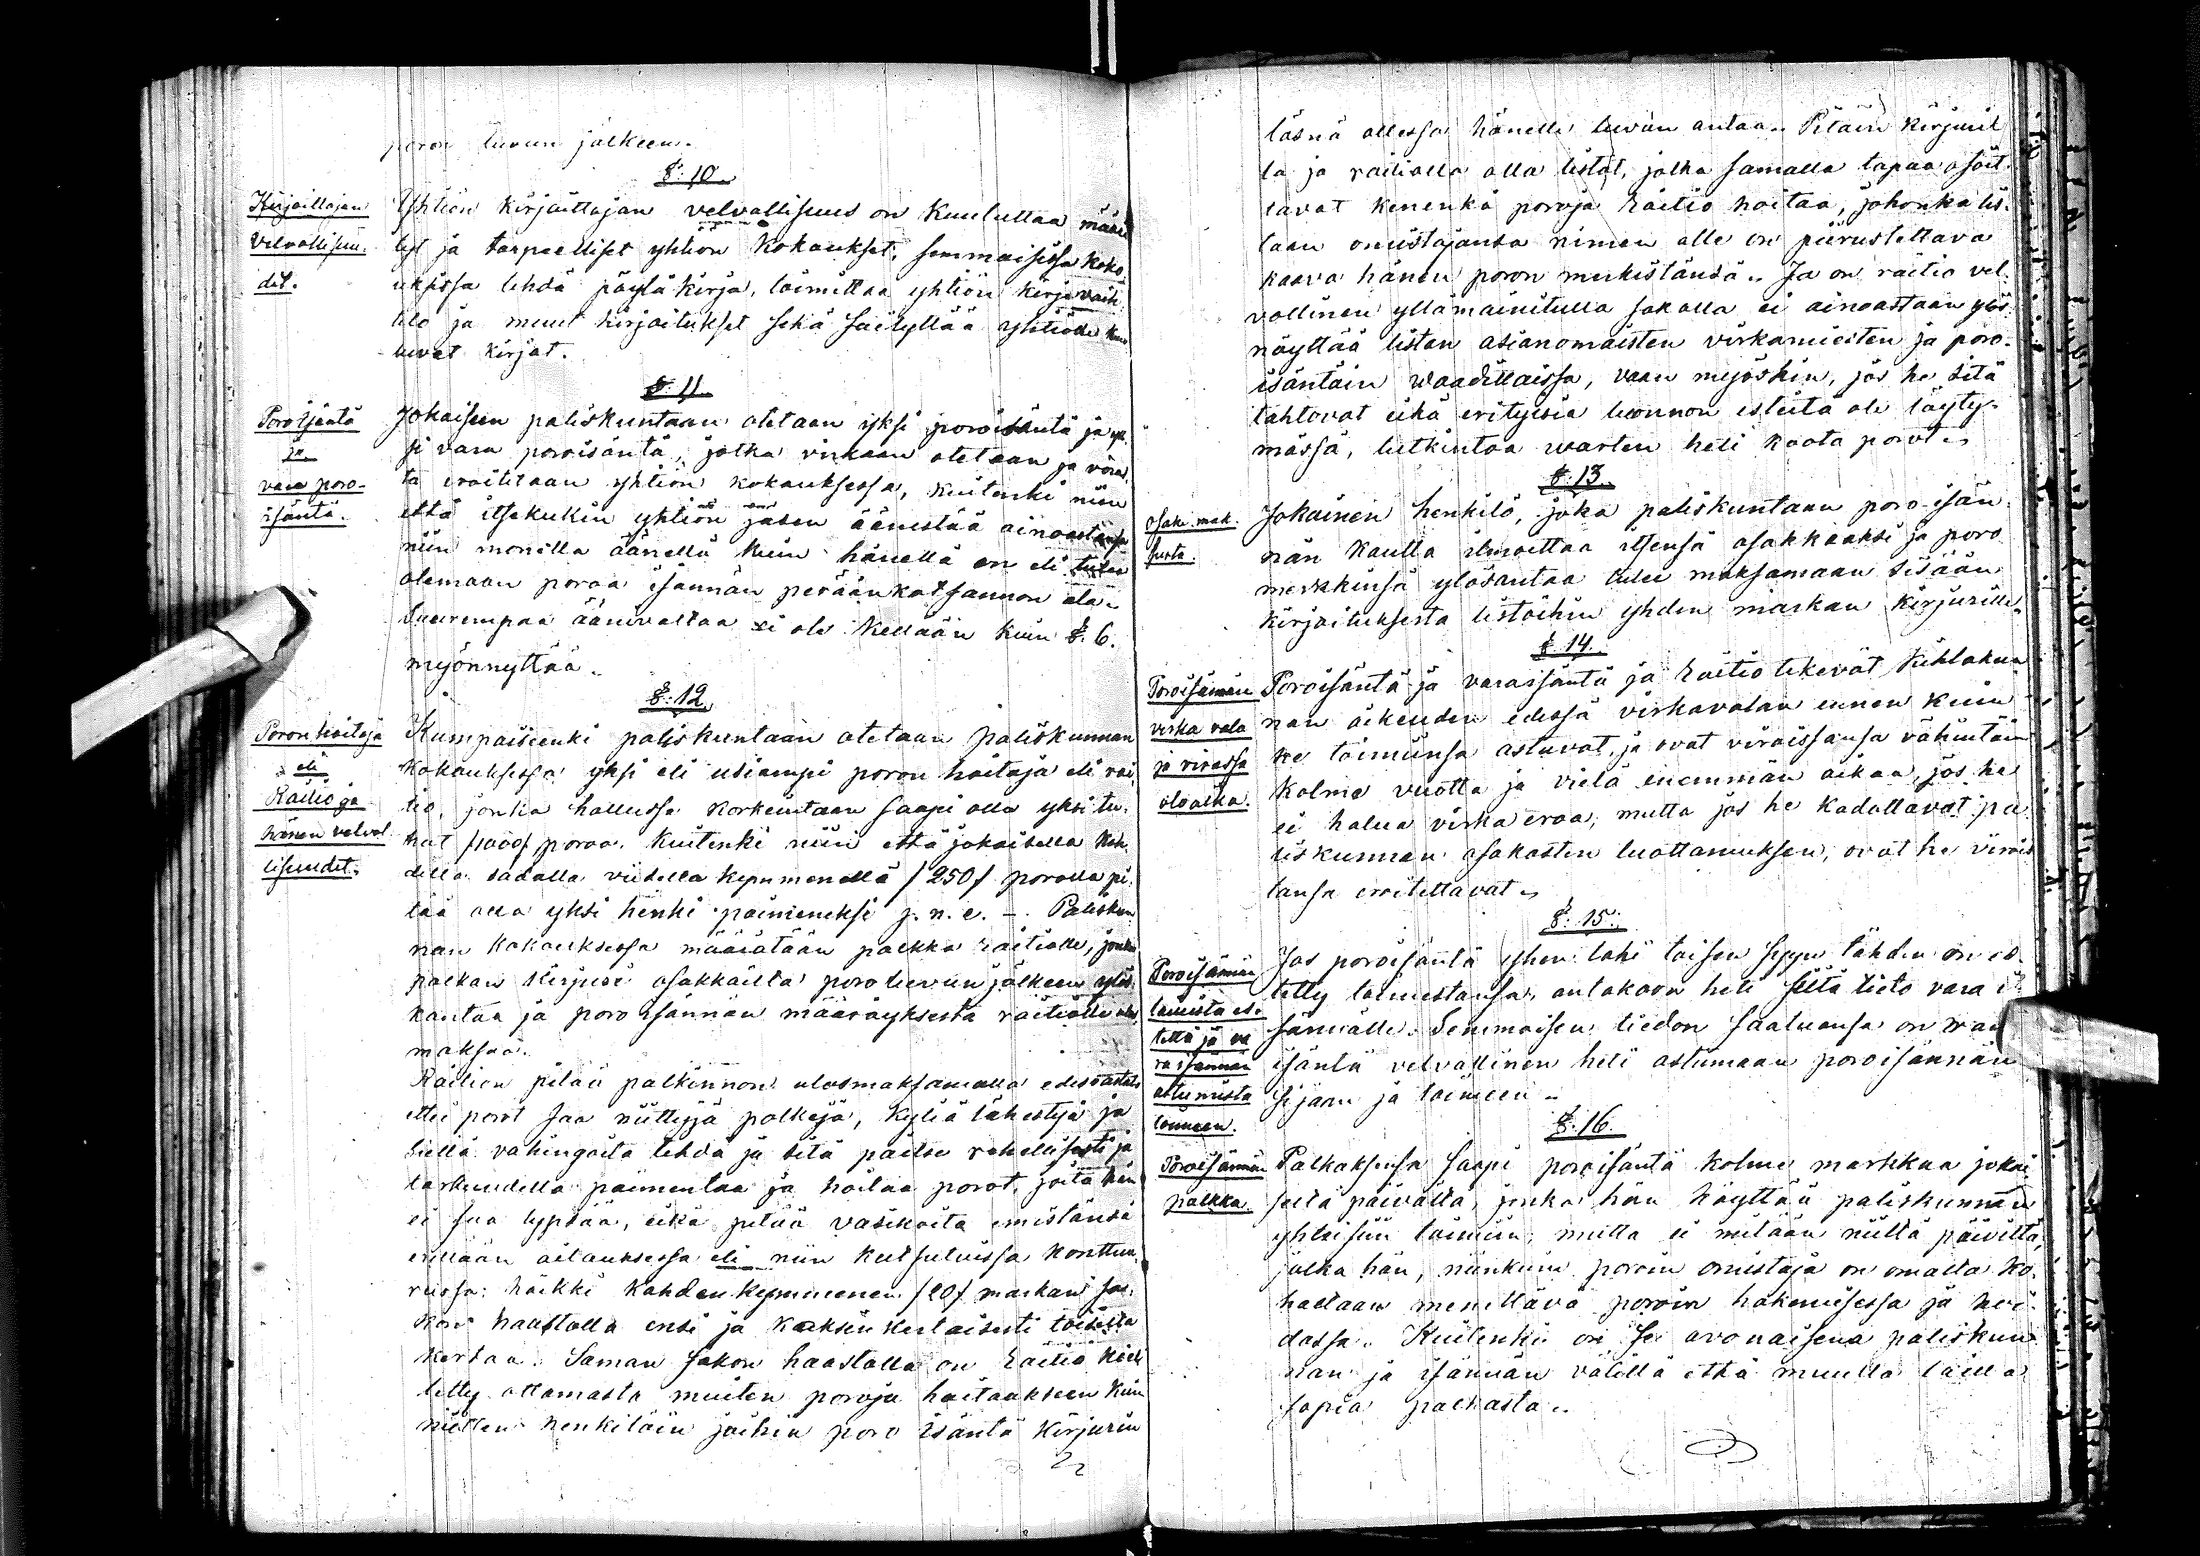 poron luvun jälkeen.
§: 10.
Kirjoittajan
velvollisuu-
det.
Yhtiön kirjoittajan velvollisuus on kuuluttaa määrä
tyt ja tarpeelliset yhtiön kokoukset, semmoisissa koko
uksissa tehdä pöytäkirja, toimittaa yhtiön kirjevaih
telo ja muut kirjoitukset sekä säilyttää yhtiölle kuu
luvat kirjat.
§: 11.
Poroisäntä
ja
vara poro-
isäntä.
Jokaiseen paliskuntaan otetaan yksi poroisäntä ja yk
si vara poroisäntä, jotka virkaan otetaan ja viras
ta eroitetaan yhtiön kokouksessa, kuitenki niin
että itsekukin yhtiön jäsen äänestää ainoastansa
niin monella äänellä kuin hänellä on eli tulee
olemaan poroa isännän peräänkatsannon ala.
Suurempaa äänivaltaa ei ole kellään kuin §. 6.
myönnyttää.
§: 12.
Poron hoitaja
eli
Raitio ja
hänen velvol
lisuudet.
Kumpaiseenki paliskuntaan otetaan paliskunnan
kokouksessa yksi eli usiampi poron hoitaja eli rai
tio, jonka hallussa korkeintaan saapi olla yksi tu-
hat /1000/ poroa. Kuitenki niin että jokaisella kah
della sadalla viidellä kymmenellä /250/ porolla pi
tää olla yksi henki paimeneksi j. n. e. -. Paliskun
nan kokouksessa määrätään palkka raitiolle, jonka
palkan kirjuri osakkailta poro luvun jälkeen ylös
kantaa ja poro isännän määräyksestä raitiolle ulos
maksaa.
Raition pitää palkinnon ulosmaksamalla edesvastata
ettei porot saa niittyjä polkeja, kyliä lähestyä ja
siellä vahingoita tehdä ja sitä paitse rehellisesti ja
tarkuudella paimentaa ja hoitaa porot, joita hän
ei saa lypsää, eikä pitää vasikoita emistänsä
erillään aitauksessa eli niin kutsutuissa konttuu
ruossa: kaikki kahdenkymmenen /20/ markan sa-
kon haastolla ensi ja kaksinkertaisesti toisella
kertaa. Saman sakon haastolla on Raitio kiel
letty ottamasta muiten poroja hoitaakseen kuin
niitten henkilöin joihin poro isäntä kirjurin
läsnä ollessa hänelle luvan antaa. Pitäin kirjuril
la ja raitiolla olla listat, jotka samalla tapaa osoit-
tavat kenenkä poroja Raitio hoitaa, johonka lis-
taan omistajansa nimen alle on piirustettava
kaava hänen poron merkistänsä. Ja on raitio vel-
vollinen yllämainitulla sakolla ei ainoastaan ylös
näyttää listan asianomaisten virkamiesten ja poro-
isäntäin waadittaissa, vaan myöskin, jos he sitä
tahtovat eikä erityisiä luonnon esteitä ole löyty-
mässä, tutkintoa warten heti koota porot.
§: 13.
osake. mak.
susta.
Jokainen henkilö, joka paliskuntaan poro-isän
nän kautta ilmoittaa itsensä osakkaaksi ja poro
merkkinsä ylösantaa tulee maksamaan sisään
kirjoituksesta listoihin yhden markan kirjurille.
§. 14.
Poroisännän
virka vala
ja virassa
oloaika.
Poroisäntä ja varaisäntä ja Raitio tekevät kihlakun
nan oikeuden edessä virkavalan ennen kuin
he toimiinsa astuvat, ja ovat viroissansa vähintäin
kolme vuotta ja vielä enemmän aikaa, jos he
ei halua virka eroa; mutta jos he kadottavat pa
liskunnan osakasten luottamuksen, ovat he virois
tansa eroitettavat.
§: 15.
Poroisännän
toimista es-
tettä ja va
ra isännän
astumista
toimeen.
Jos poroisäntä yhen tahi toisen syyn tähden on es-
tetty toimestansa, antakoon heti siitä tieto vara i
sännälle. Semmoisen tiedon saatuansa on vara
isäntä velvollinen heti astumaan poroisännän
sijaan ja toimeen.
§: 16.
Poroisännän
palkka.
Palkaksensa saapi poroisäntä kolme markkaa jokai
selta päivältä, jonka hän käyttää paliskunnan
yhteisiin toimiin, mutta ei mitään niiltä päiviltä,
jotka hän, niinkuin poroin omistaja on omalta ko-
hastaan menettävä poroin hakemisessa ja hoi-
dossa. Kuitenki on se avonaisena paliskun
nan ja isännän välillä että muulla lailla
sopia palkasta.